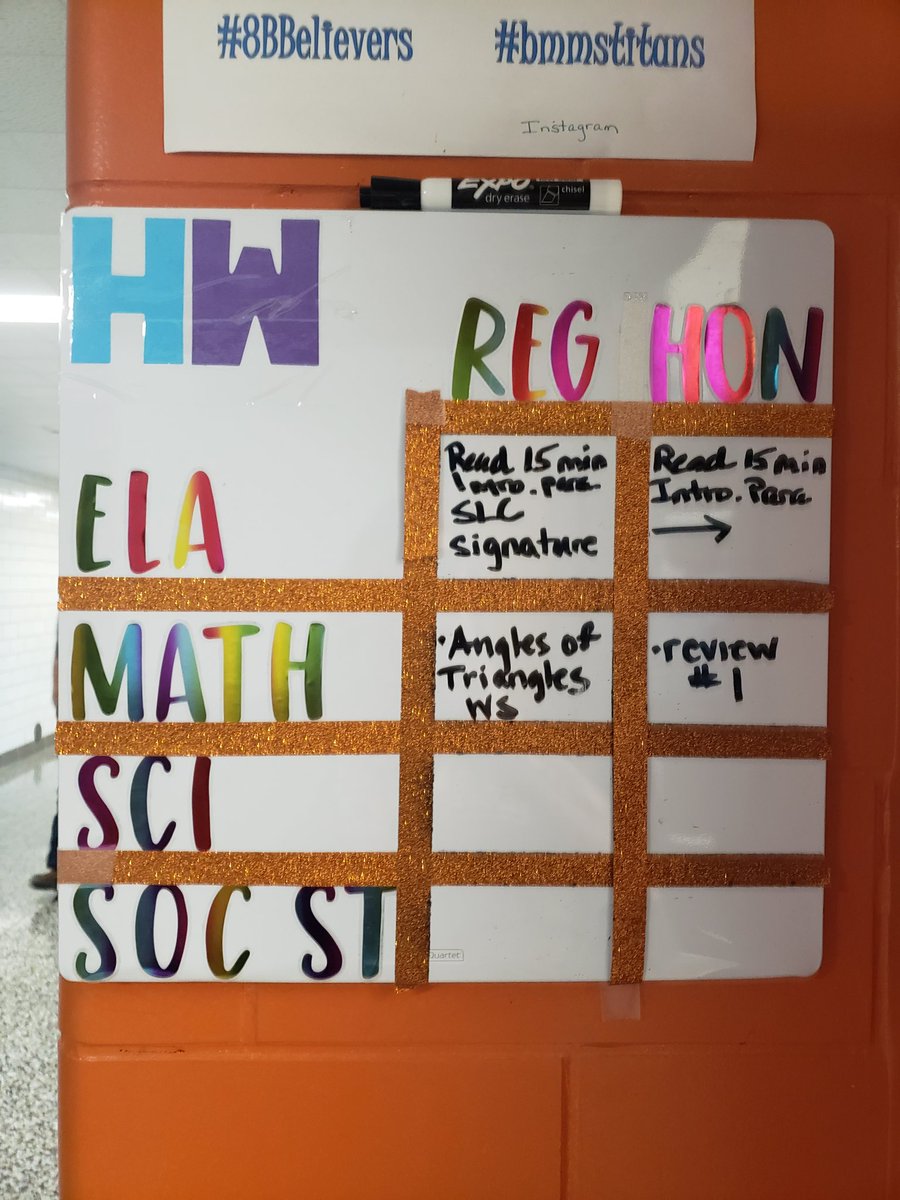 #8BBelievers #bmmstitans
Instagram
EXPO
dry erase chisel
HW
REG HON
ELA
Read 15 min
Intro. para
SLC
signature
Read 15 min
Intro. Para
→
MATH
·Angles of
Triangles
WS
·review
#1
SCI
SOC ST
Quartet